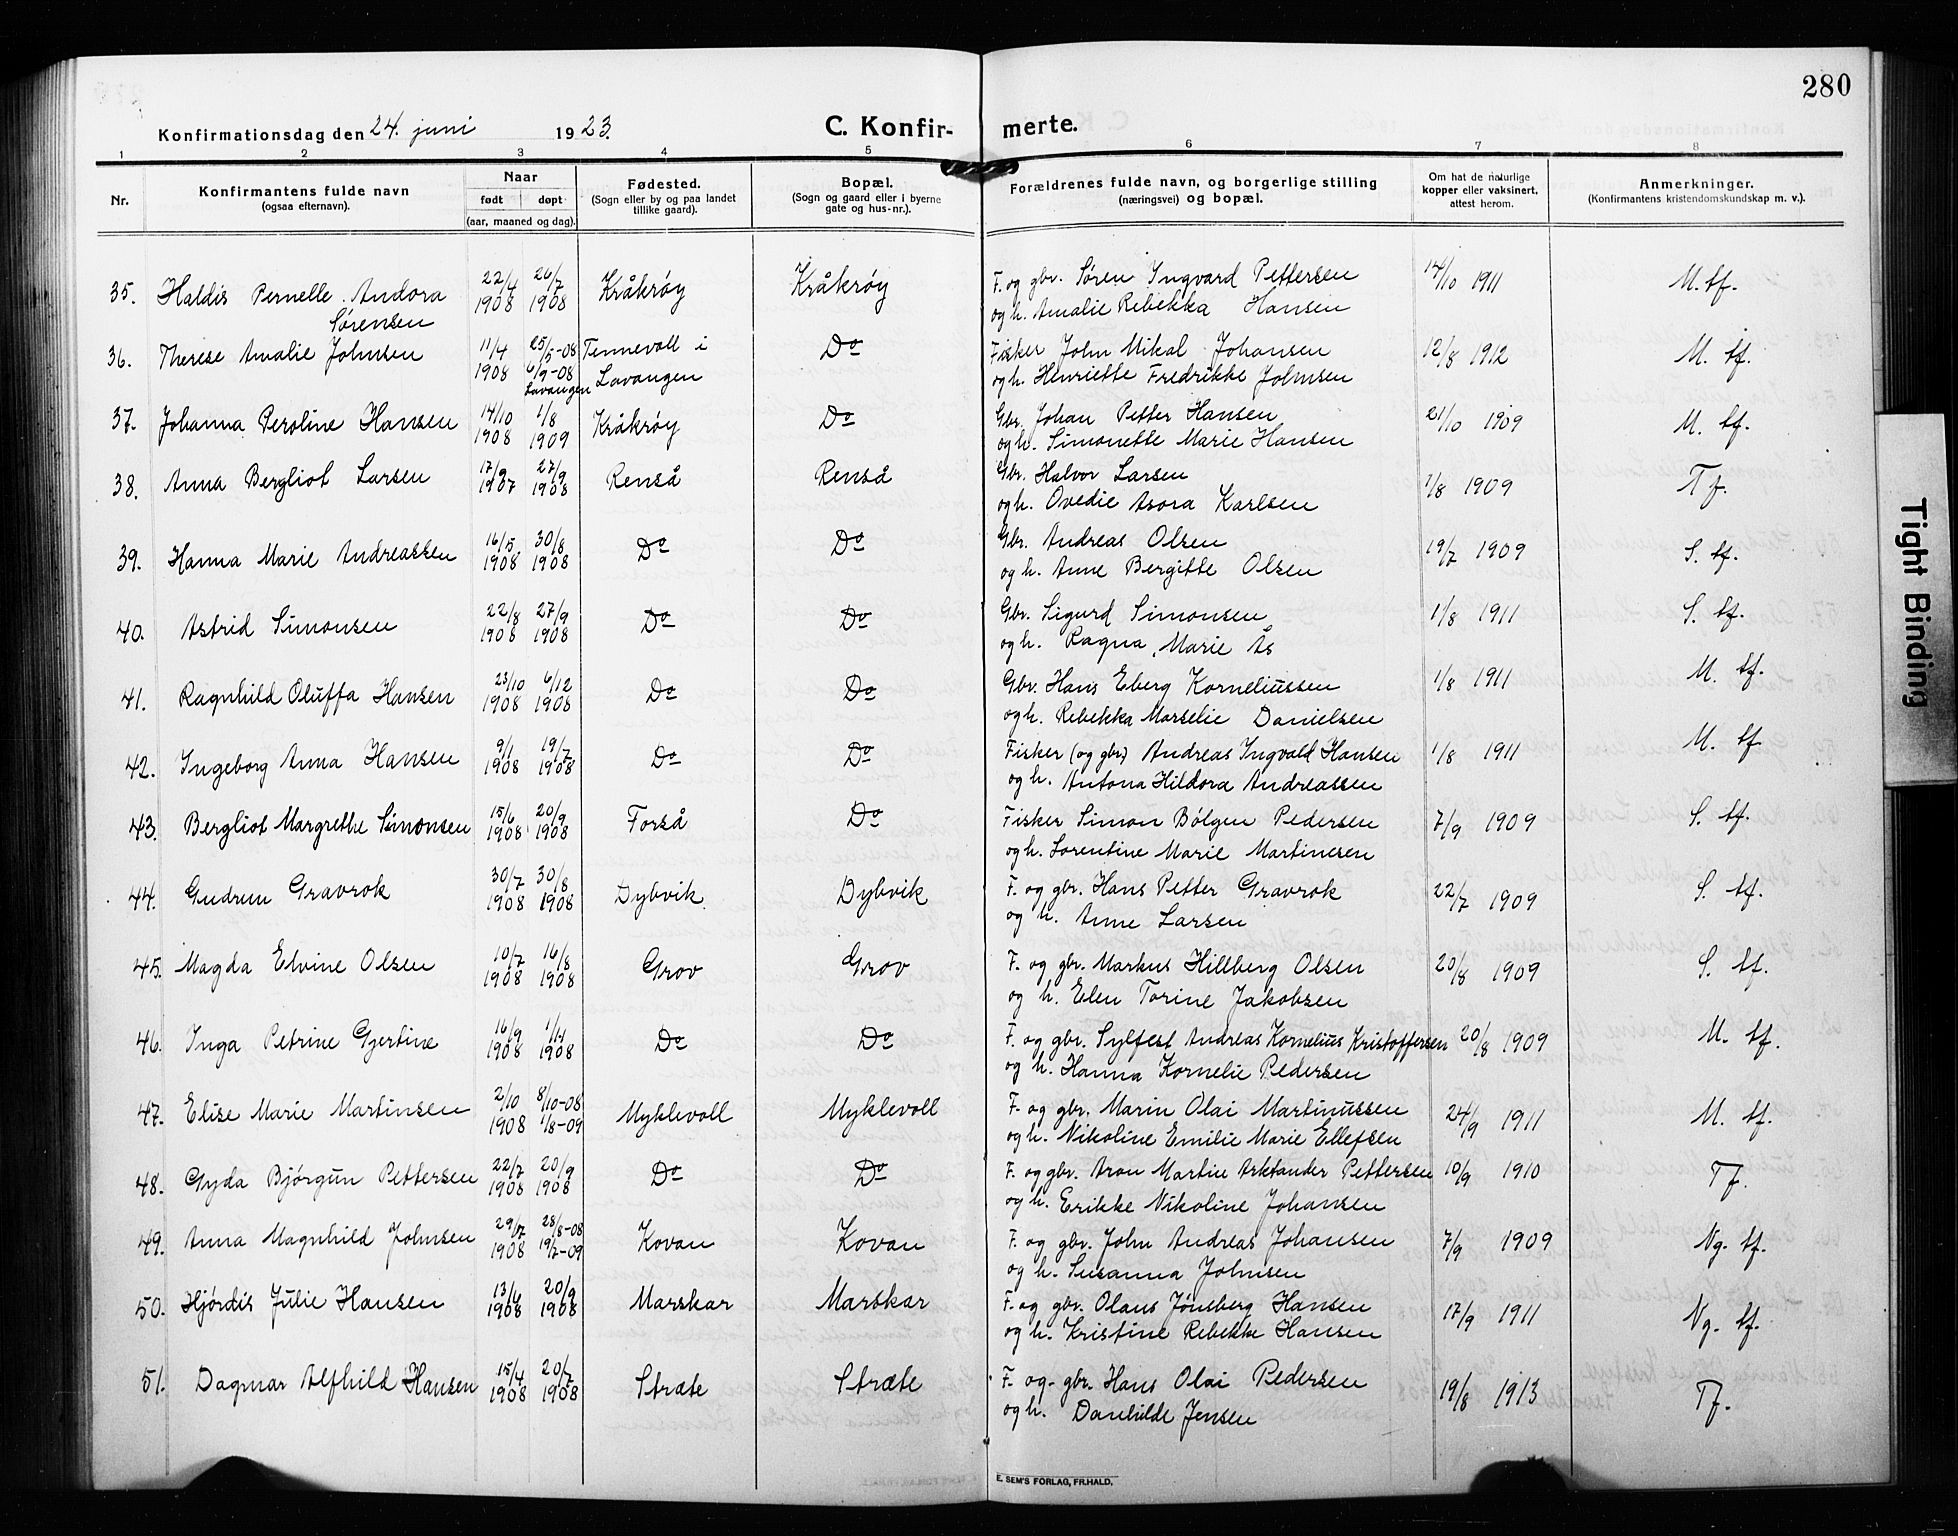 280
Konfirmationsdag den 24. juni 1923. C. Konfir- merte.
1 2 3 4 5 6 7 8
Nr. Konfirmantens fulde navn (ogsaa efternavn). Naar født døpt (aar, maaned og dag). Fødested. (Sogn eller by og paa landet tillike gaard). Bopæl. (Sogn og gaard eller i byerne gate og hus-nr.). Forældrenes fulde navn, og borgerlige stilling (næringsvei) og bopæl. Om hat de naturlige kopper eller vaksinert, attest herom. Anmerkninger. (Konfirmantens kristendomskundskap m. v.).
35. Haldis Pernelle Andora Sørensen 22/4 1908 26/7 1908 Kråkrøy Kråkrøy F. og gbr. Søren Ingvard Pettersen 14/10 1911 M. tf.
og h. Amalie Rebekka Hansen
36. Therese Amalie Johnsen 11/4 1908 25/5-08 6/9-08 Lavangen Tennevoll i Lavangen Do Fisker John Mikal Johansen 12/8 1912 M. tf.
og h. Henriette Fredrikke Johnsen
37. Johanna Peroline Hansen 14/10 1908 1/8 1909 Kråkrøy Do Gbr. Johan Petter Hansen 21/10 1909 M. tf.
og h. Simonette Marie Hansen
38. Anna Bergliot Larsen 17/9 1907 27/9 1908 Renså Renså Gbr. Halvor Larsen 1/8 1909 Tf.
og h. Ovedie Asora Karlsen
39. Hanna Marie Andreassen 16/5 1908 30/8 1908 Do Do Gbr. Andreas Olsen 19/7 1909 S. tf.
og h. Anne Bergitte Olsen
40. Astrid Simonsen 22/8 1908 27/9 1908 Do Do Gbr. Sigurd Simonsen 1/8 1911 S. tf.
og h. Ragna Marie Ås
41. Ragnhild Oluffa Hansen 23/10 1908 6/12 1908 Do Do Gbr. Hans Eberg Korneliussen 1/8 1911 M. tf.
og h. Rebekka Marselie Danielsen
42. Ingeborg Anna Hansen 9/1 1908 19/7 1908 Do Do Fisker (og gbr.) Andreas Ingvald Hansen 1/8 1911 M. tf.
og h. Antona Hildora Andreassen
43. Bergliot Margrethe Simonsen 15/6 1908 20/9 1908 Forså Do Fisker Simon Bølgen Pedersen 7/9 1909 S. tf.
og h. Lorentine Marie Martinesen
44. Gudrun Gravrok 30/7 1908 30/8 1908 Dybvik Dybvik F. og gbr. Hans Petter Gravrok 22/7 1909 S. tf.
og h. Anne Larsen
45. Magda Elvine Olsen 10/7 1908 16/8 1908 Grov Grov F. og gbr. Markus Hillberg Olsen 20/8 1909 S. tf.
og h. Elen Torine Jakobsen
46. Inga Petrine Gjertine 16/9 1908 1/11 1908 Do Do F. og gbr. Sylfest Andreas Kornelius Kristoffersen 20/8 1909 M. tf.
og h. Hanna Kornelie Pedersen
47. Elise Marie Martinsen 2/10 1908 8/10-08 1/8-09 Myklevoll Myklevoll F. og gbr. Marin Olai Martinussen 24/9 1911 M. tf.
og h. Nikoline Emilie Marie Ellefsen
48. Gyda Bjørgun Pettersen 22/7 1908 20/9 1908 Do Do F. og gbr. Aron Martin Arktander Pettersen 10/9 1910 Tf.
og h. Erikke Nikoline Johansen
49. Anna Magnhild Johnsen 29/7 1908 28/8-08 19/7-09 Kovan Kovan F. og gbr. John Andreas Johansen 7/9 1909 Ng. tf.
og h. Susanna Johnsen
50. Hjørdis Julie Hansen 13/6 1908 20/9 1908 Marskar Marskar F. og gbr. Olaus Jønsberg Hansen 17/9 1911 Ng. tf.
og h. Kristine Rebekke Hansen
51. Dagmar Alfhild Hansen 15/4 1908 20/7 1908 Stræte Stræte F. og gbr. Hans Olai Pedersen 19/8 1913 Tf.
og h. Danhilde Jensen
E. SEM'S FORLAG, FR.HALD.
Tight Binding